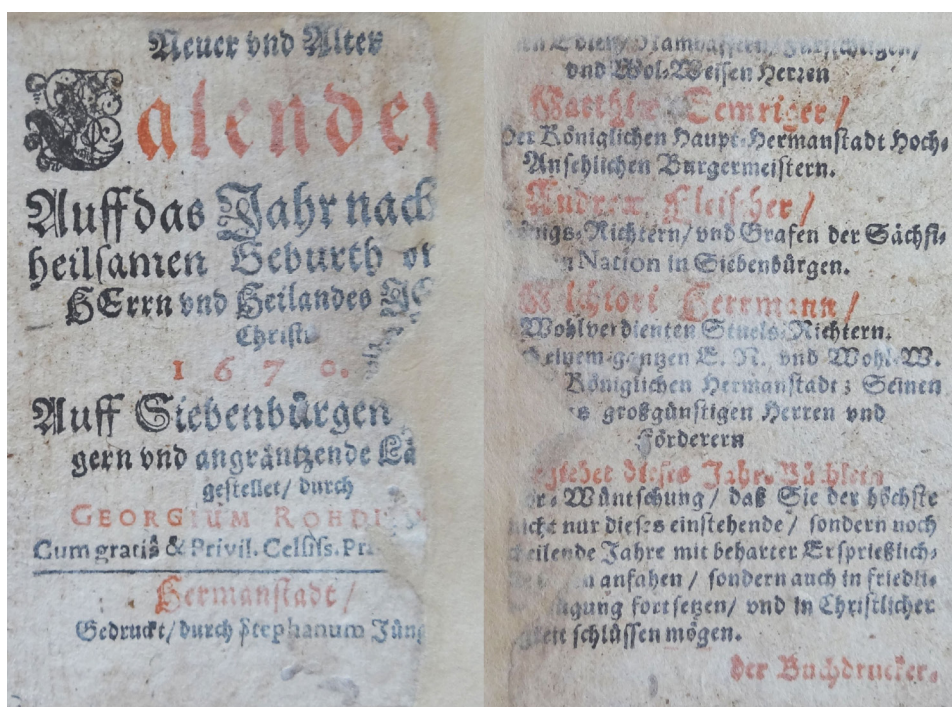 Neuer vnd Alter
Calender
Auff das Jahr nach
heilsamen Geburth
HErrn vnd Heilandes
Christi
1670.
Auff Siebenbürgen
gern vnd angräntzende Lä
gestellet/ durch
GEORGIUM ROHDI
Cum gratiâ & Privil. Celsiss. Pr
Hermanstadt/
Gedruckt/ durch Stephanum Jüng
Edlen/ Namhafften/ Fürsichtigen/
vnd Wol-Weisen Herren
Matthiæ Semriger/
Der Königlichen Haupt-Hermanstadt Hoch-
Ansehlichen Burgermeistern.
Andreæ Fleischer/
Königs-Richtern/ vnd Grafen der Sächsi-
Nation in Siebenbürgen.
Melchiori Herrmann/
Wohlverdienten Stuels-Richtern.
gantzen E. N. vnd Wohl-W.
Königlichen Hermanstadt; Seinen
großgünstigen Herren vnd
Förderern
dieses Jahr-Büchlein
Wüntschung/ daß Sie der höchste
nicht nur dieses einstehende/ sondern noch
Jahre mit beharter Ersprießlich-
anfahen/ sondern auch in friedli-
fortsetzen/ vnd in Christlicher
schlüssen mögen.
der Buchdrucker.